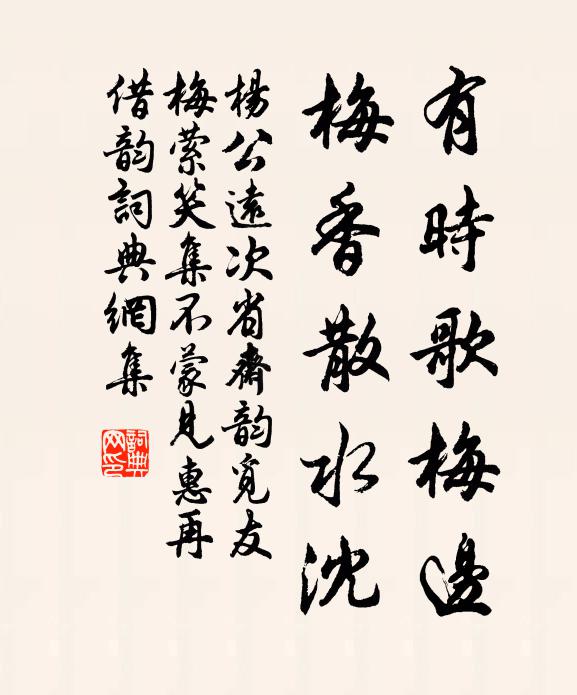 有時歌梅邊
梅香散水沈
楊公遠次省齋韵覓友
梅縈笑集不蒙見惠再
借韵詞典網集
詞典网印